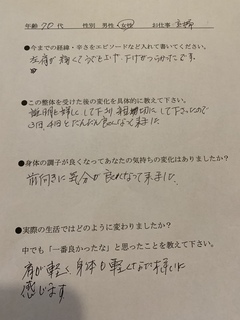 年齢 70代 性別 男性・女性 お仕事 主婦
●今までの経緯・辛さをエピソードなど入れて書いてください。
左肩が痛くてうでを上げ、下げがつらかったです。
●この整体を受けた後の変化を具体的に教えて下さい。
説明を詳しくして下り して下さったので
3回、4回とだんだん良くなって来ました
●身体の調子が良くなってあなたの気持ちの変化はありましたか?
前向きに気分が良くなって来ました。
●実際の生活ではどのように変わりましたか?
中でも「一番良かったな」と思ったことを教えて下さい。
肩が軽く、身体も軽くなった様に
感じます